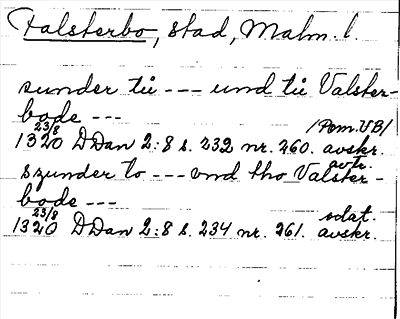 Falsterbo, stad, Malm. l.
sunder tü --- und tü Valster-
bode ---
23/8 /Pom.UB/
1320 DDan 2:8 s. 232 nr. 260. avskr.
avtr.
szunder to --- vnd tho Valster-
bode ---
23/8 sdat.
1320 DDan 2:8 s. 234 nr. 261. avskr.